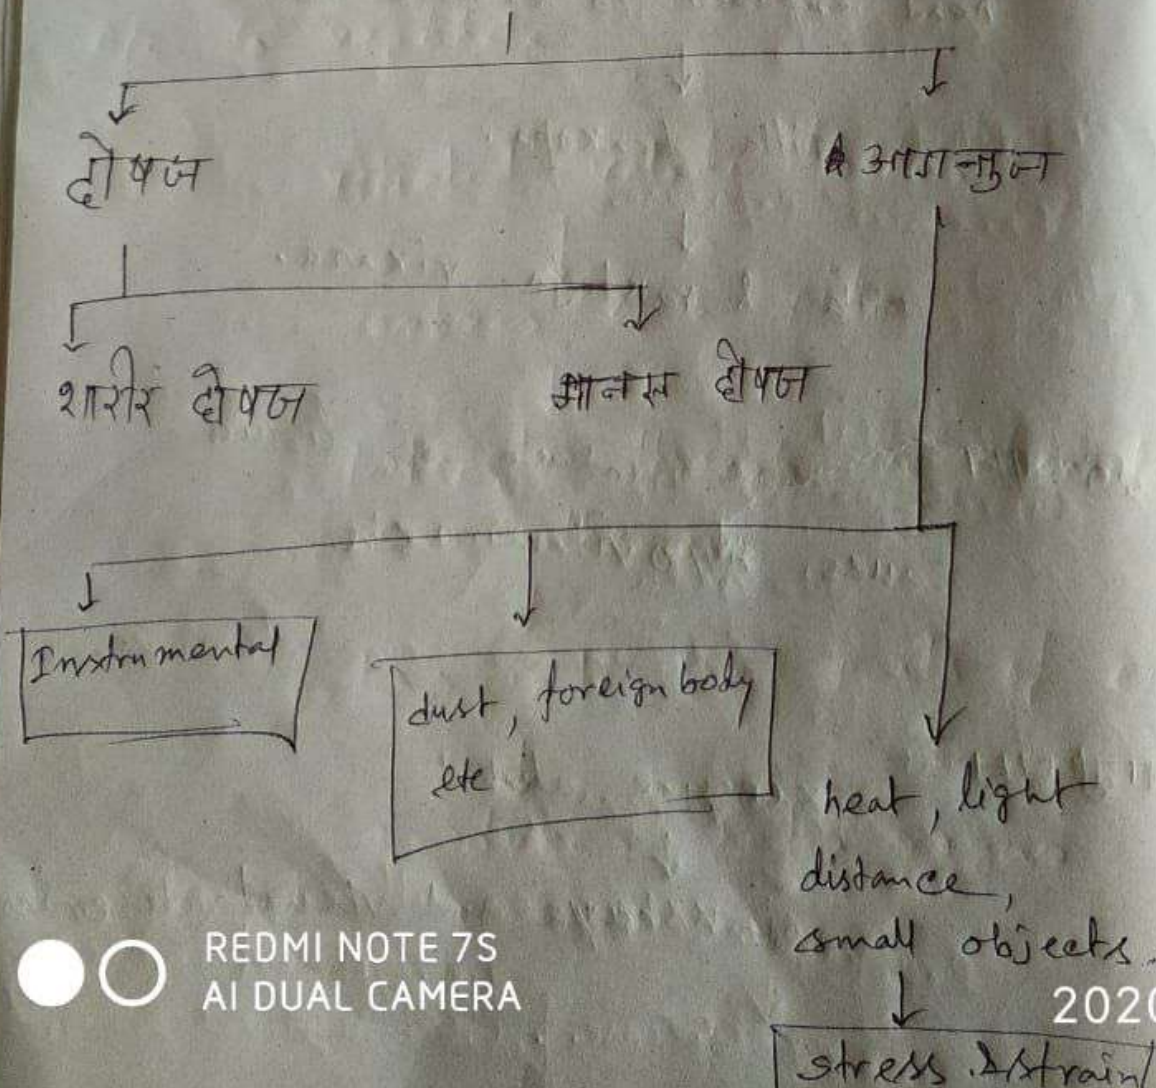 दोषज
आगन्तुज
शारीर दोषज
मानस दोषज
Instrumental
dust, foreign body
etc
heat, light
distance,
small objects.
stress & strain
REDMI NOTE 7S
AI DUAL CAMERA
2020